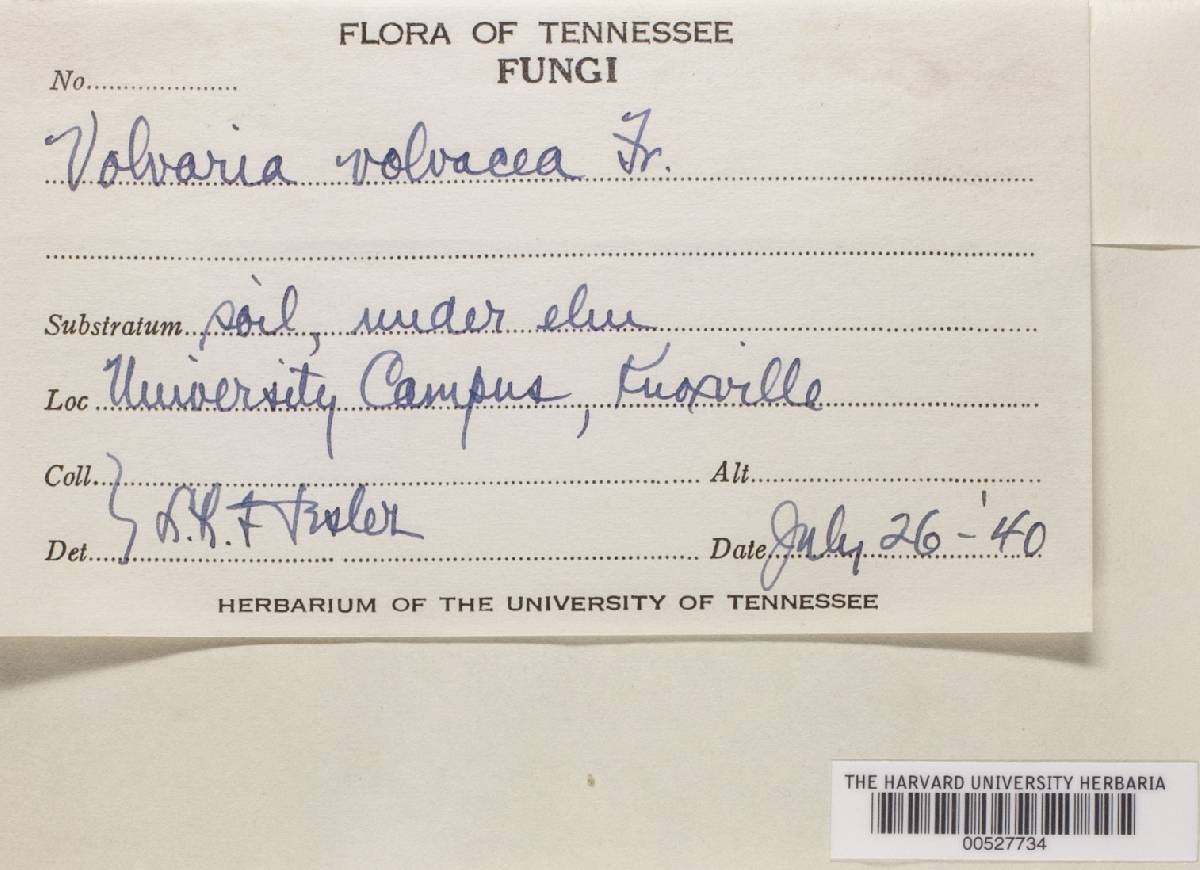 FLORA OF TENNESSEE
FUNGI
No.
Volvaria volvacea Fr.
Substratum soil, under elm
Loc University Campus, Knoxville
Coll. Alt.
Det. L.R. Hesler Date July 26-'40
HERBARIUM OF THE UNIVERSITY OF TENNESSEE
THE HARVARD UNIVERSITY HERBARIA
00527734